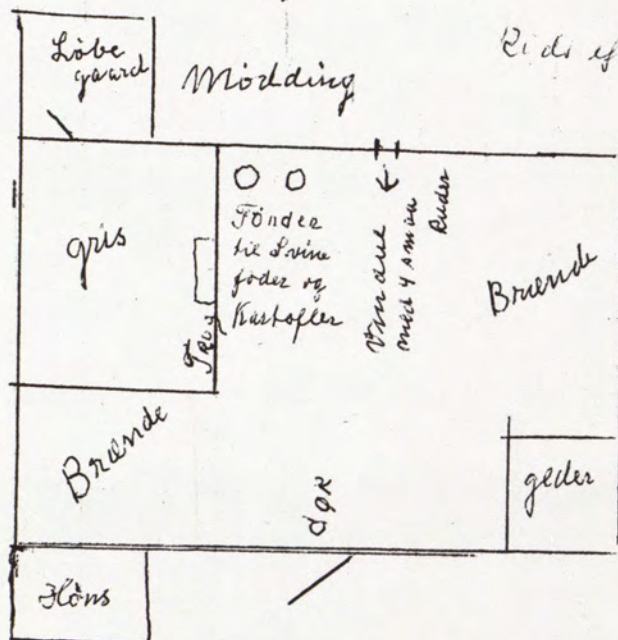 Löbe
gaard
Mödding
gris
Trug
Tönder
til Svine
foder og
Kartofler
Vindue
med 4 smaa
Ruder
Brænde
Brænde
dør
geder
Höns